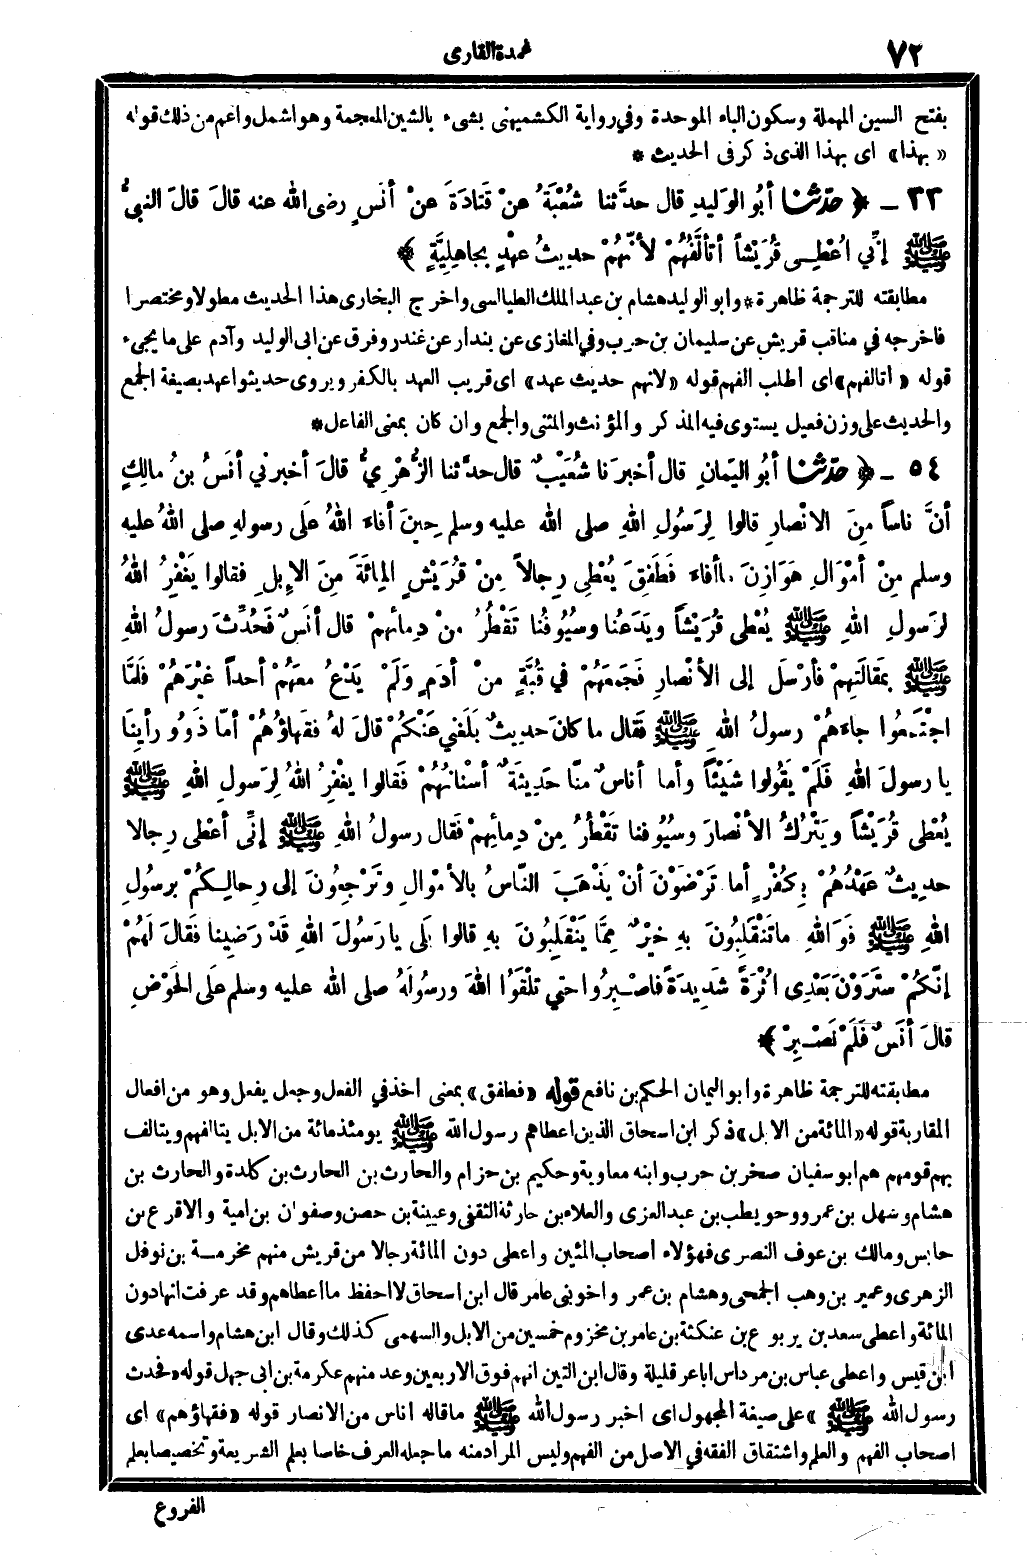 ٧٢
عمدة القارى
بفتح السين المهملة وسكون الباء الموحدة وفى رواية الكشميهنى بشىء بالشين المعجمة وهو اشمل واعم من ذلك قوله
«بهذا» اى بهذا الذى ذكر فى الحديث *
٣٣ ـ ﴿ حدّثنا أبُو الوليدِ قال حدّثنا شُعْبَةُ عنْ قَتَادَةَ عنْ أنَسٍ رضى الله عنه قالَ قالَ النبىُّ
ﷺ إنِّي اُعْطِى قُرَيْشاً أتألَّفُهُمْ لأنَّهُمْ حدِيثُ عهْدٍ بجاهِلِيَّةٍ ﴾
مطابقته للترجمة ظاهرة * وابو الوليد هشام بن عبد الملك الطيالسى واخرج البخارى هذا الحديث مطولا ومختصرا
فاخرجه في مناقب قريش عن سليمان بن حرب وفي المغازى عن بندار عن غندر وفرق عن ابى الوليد وآدم على ما يجىء
قوله «أتالفهم» اى اطلب الفهم قوله «لانهم حديث عهد» اى قريب العهد بالكفر ويروى حديثو اعهد بصيغة الجمع
والحديث على وزن فعيل يستوى فيه المذكر والمؤنث والمثنى والجمع وان كان بمعنى الفاعل *
٥٤ ـ ﴿ حدّثنا أبُو اليَمانِ قال أخبرَنا شُعَيْبٌ قال حدَّثنا الزُّهْرِيُّ قالَ أخبرني أنَسُ بنُ مالِكٍ
أنَّ ناساً مِنَ الانْصارِ قالوا لِرَسُولِ اللهِ صلى الله عليه وسلم حِينَ أفاءَ اللهُ عَلَى رسولِهِ صلى اللهُ عليه
وسلم مِنْ أمْوَالِ هَوَازِنَ ماأفاءَ فَطَفِقَ يُعْطِى رِجالاً مِنْ قُرَيْشٍ المِائَةَ مِنَ الإبِلِ فقالوا يَغْفِرُ اللهُ
لرَسولِ اللهِ ﷺ يُعْطِى قُرَيْشاً ويَدَعُنا وسُيُوفُنا تَقْطُرُ منْ دِمائِهمْ قال أنَسٌ فَحُدِّثَ رسولُ اللهِ
ﷺ بمَقالَتِهِمْ فأرْسَلَ إلى الأنْصارِ فَجَمَعَهُمْ في قُبَّةٍ منْ أدَمٍ ولَمْ يَدْعُ معَهُمْ أحداً غيْرَهُمْ فلمَّا
اجْتَمعُوا جاءَهُمْ رسولُ اللهِ ﷺ فقال ما كانَ حدِيثٌ بَلَغَني عَنْكُمْ قالَ لهُ فقهاؤُهُمْ أمّا ذَوُو رأيِنا
يا رسولَ اللهِ فلَمْ يَقُولوا شَيْئاً وأما أُناسٌ منَّا حَدِيثَةٌ أسْنانُهُمْ فَقالوا يغْفِرُ اللهُ لِرَسولِ اللهِ ﷺ
يُعْطِى قُرَيْشاً ويَتْرُكُ الأنْصارَ وسُيُوفنا تَقْطُرُ مِنْ دِمائِهِمْ فَقال رسولُ اللهِ ﷺ إنِّى أُعْطِى رِجالا
حدِيثٌ عهْدُهُمْ بِكُفْرٍ أما تَرْضَوْنَ أنْ يذْهَبَ النّاسُ بالأمْوالِ وتَرْجِعُونَ إلى رِحالِكُمْ برسُولِ
اللهِ ﷺ فوَاللهِ ماتَنْقَلِبُونَ بهِ خيْرٌ مِمَّا يَنْقَلِبُونَ بهِ قالوا بَلَى يا رَسُولَ اللهِ قَدْ رَضِينا فقالَ لَهُمْ
إنَّكُمْ ستَرَوْنَ بَعْدِى اُثْرَةً شَدِيدَةً فاصْبِرُوا حتي تَلْقَوُا اللهَ ورسُولَهُ صلى الله عليه وسلم علَى الحَوْضِ
قالَ أنَسٌ فَلَمْ نَصْبِرْ ﴾
مطابقته للترجمة ظاهرة وابو اليمان الحكم بن نافع قوله «فطفق» بمعنى اخذ في الفعل وجعل يفعل وهو من افعال
المقاربة قوله «المائة من الابل» ذكر ابن اسحاق الذين اعطاهم رسول الله ﷺ يومئذ مائة من الابل يتالفهم ويتالف
بهم قومهم هم ابو سفيان صخر بن حرب وابنه معاوية وحكيم بن حزام والحارث بن الحارث بن كلدة والحارث بن
هشام وسهل بن عمرو وحويطب بن عبد العزى والعلاء بن حارثة الثقفى وعيينة بن حصن وصفوان بن امية والاقرع بن
حابس ومالك بن عوف النصرى فهؤلاء اصحاب المئين واعطى دون المائة رجالا من قريش منهم مخرمة بن نوفل
الزهرى وعمير بن وهب الجمحى وهشام بن عمر واخو بنى عامر قال ابن اسحاق لا احفظ ما اعطاهم وقد عرفت انها دون
المائة واعطى سعد بن يربوع بن عنكثة بن عامر بن مخزوم خمسين من الابل والسهمى كذلك وقال ابن هشام واسمه عدى
ابن قيس واعطى عباس بن مرداس اباعر قليلة وقال ابن التين انهم فوق الاربعين وعد منهم عكرمة بن ابى جهل قوله «فحدث
رسول الله ﷺ» على صيغة المجهول اى اخبر رسول الله ﷺ ما قاله اناس من الانصار قوله «فقهاؤهم» اى
اصحاب الفهم والعلم واشتقاق الفقه في الاصل من الفهم وليس المراد منه ما جعله العرف خاصا بعلم الشريعة وتخصيصا بعلم
الفروع